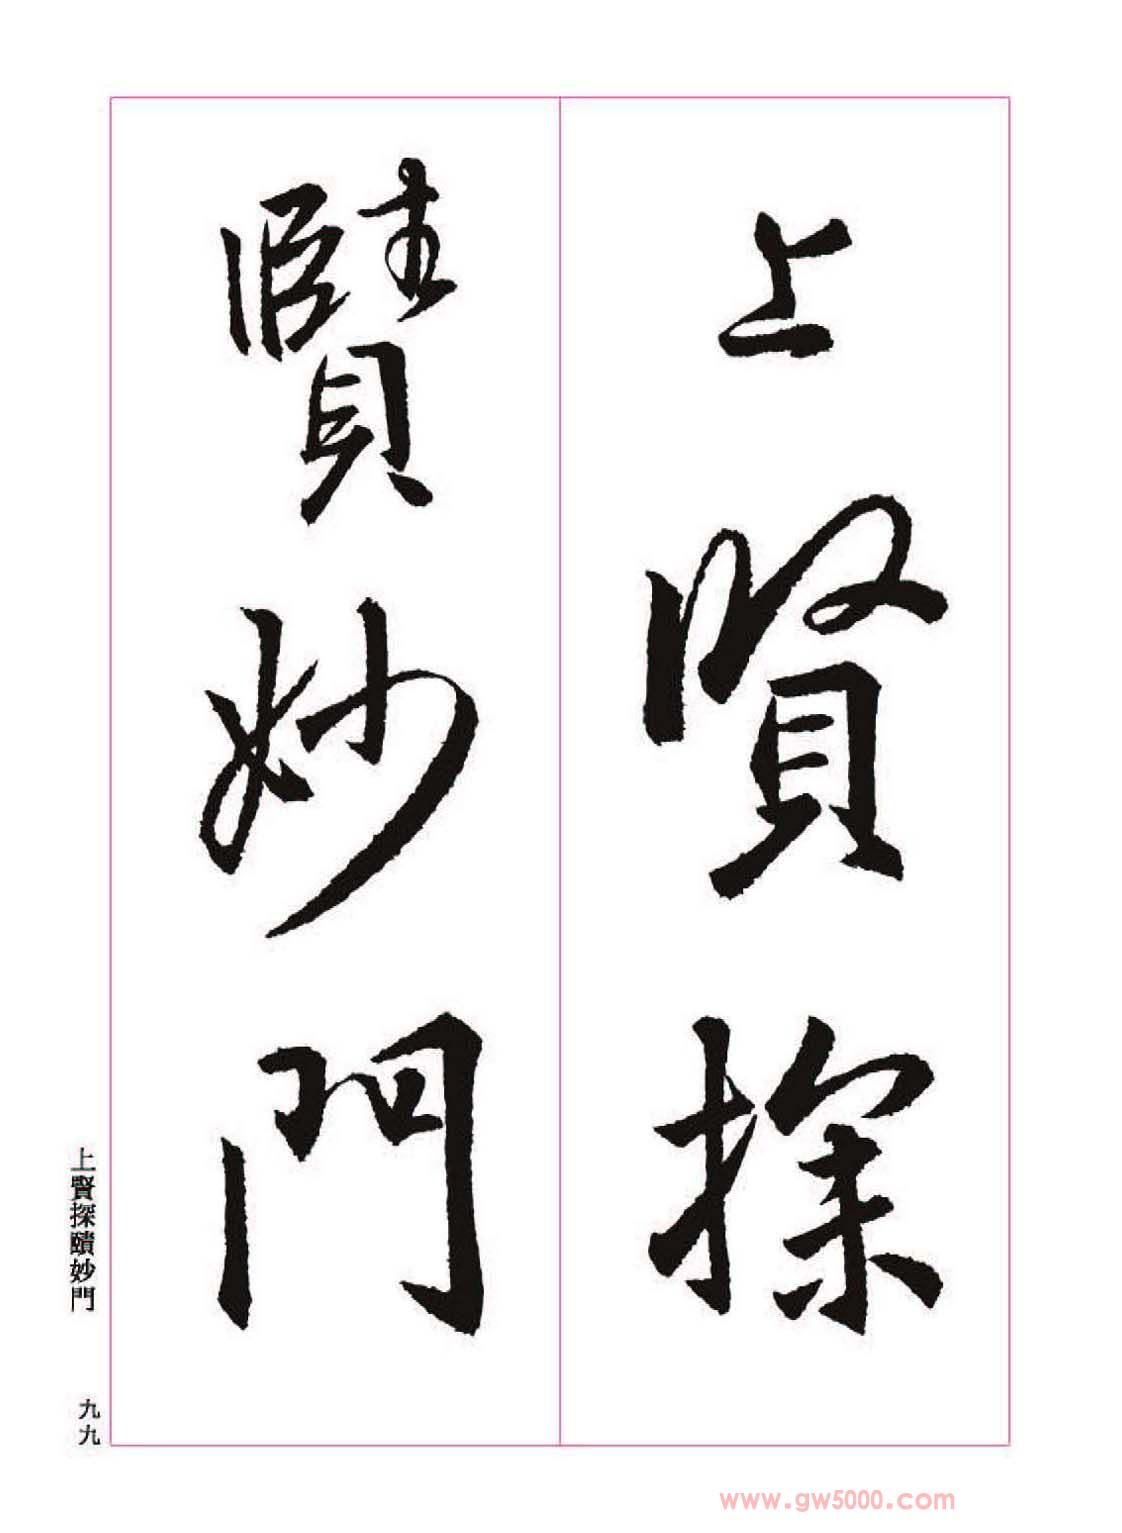 上賢探
賾妙門
上賢探賾妙門
九九
www.gw5000.com